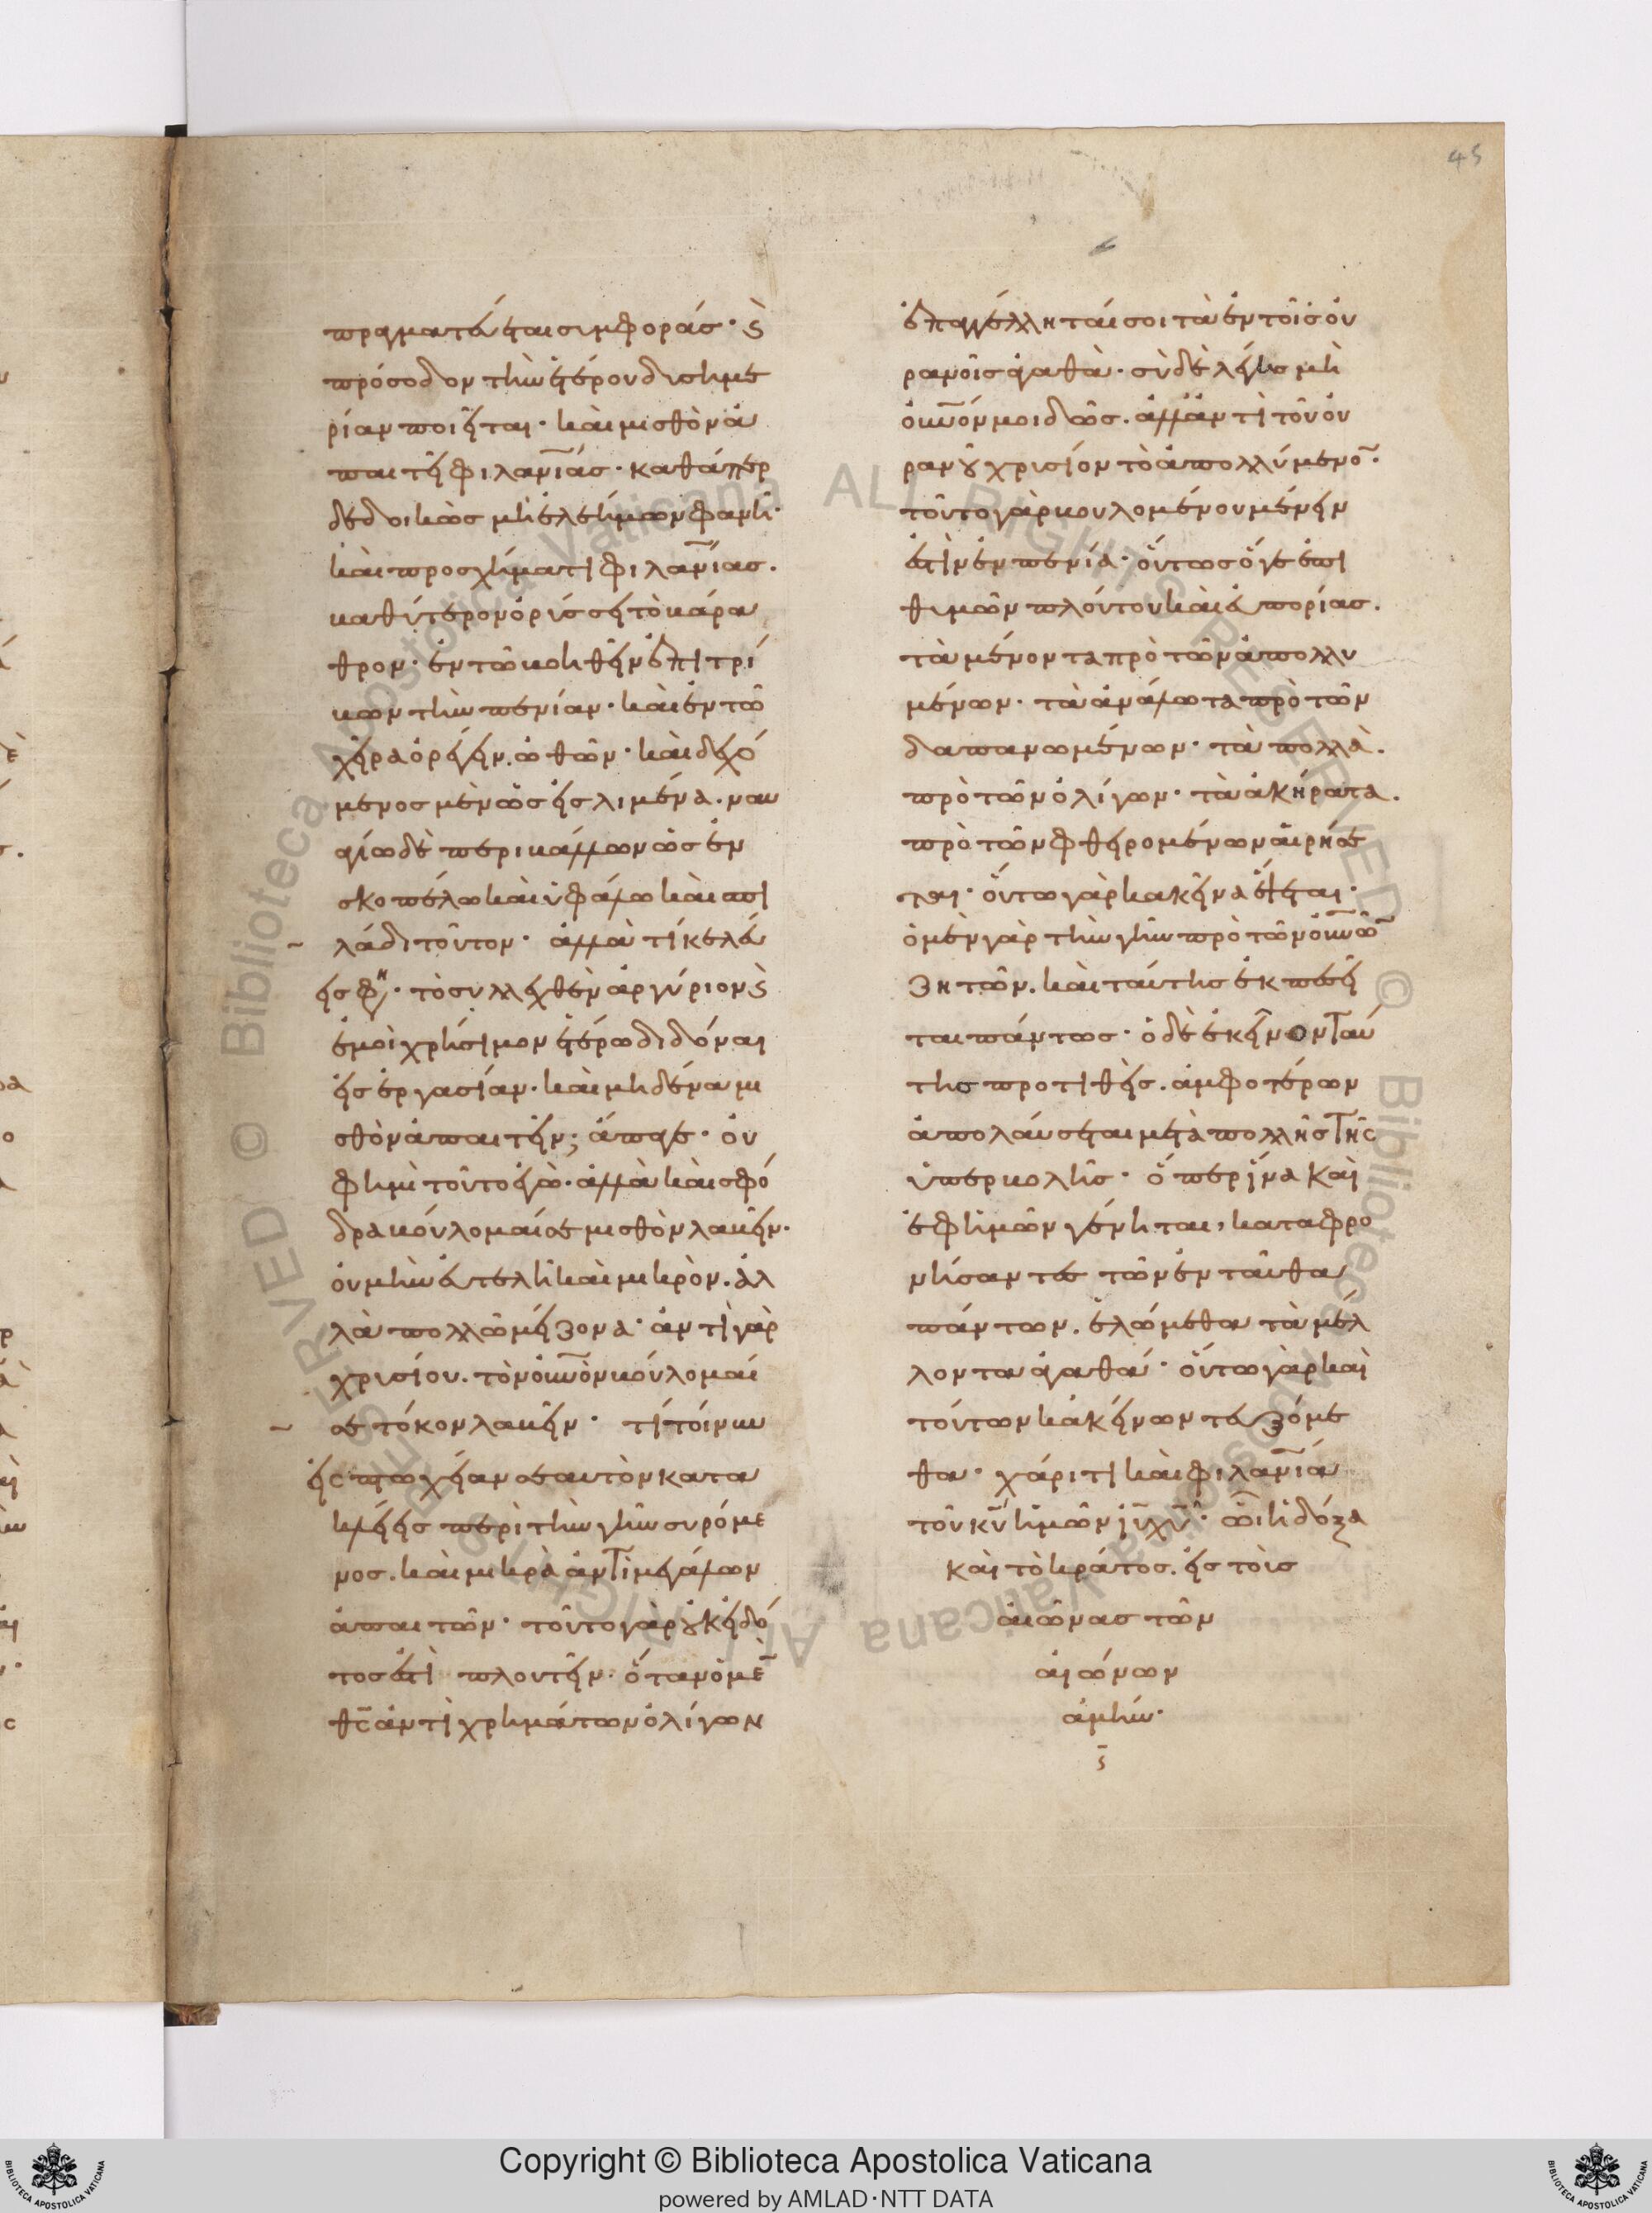 45
πραγματεύεται συμφοράς· καὶ
πρόσοδον τὴν ἑτέρου δυσημε
ρίαν ποιεῖται· καὶ μισθὸν ἀ
παιτεῖ φιλανίας· καθάπερ
δεδοικὼς μὴ ἐλεήμων φανῆ·
καὶ προσχήματι φιλανίας.
βαθύτερον ὀρύσσει τὸ βάρα
θρον· ἐν τῶ βοηθεῖν ἐπιτρί
βων τὴν πενίαν· καὶ ἐν τῶ
χεῖρα ὀρέγειν. ὠθῶν· καὶ δεχό
μενος μὲν ὡς εἰς λιμένα. ναυ
αγίω δὲ περιβάλλων ὡς ἐν
σκοπέλω καὶ ὑφάλω καὶ σπι
λάδι τοῦτον· ἀλλὰ τί κελεύ
εις φη· τὸ συλλεχθὲν ἀργύριον καὶ
ἐμοὶ χρήσιμον ἑτέρω διδόναι
εἰς ἐργασίαν. καὶ μηδένα μι
σθὸν ἀπαιτεῖν; ἄπαγε· οὐ
φημὶ τοῦτο ἐγώ· ἀλλὰ καὶ σφό
δρα βούλομαί σε μισθὸν λαβεῖν·
οὐ μὴν εὐτελῆ καὶ μικρὸν. ἀλ
λὰ πολλῶ μείζονα· ἀντὶ γὰρ
χρυσίου. τὸν οὐνὸν βούλομαί
σε τόκον λαβεῖν· τί τοίνυν
εἰς πτωχείαν σεαυτὸν κατα
κλείεις περὶ τὴν γῆν συρόμε
νος. καὶ μικρὰ ἀντὶ μεγάλων
ἀπαιτῶν· τοῦτο γὰρ οὐκ εἰδό
τος ἐστὶ πλουτεῖν· ὅταν ὁ μὲν
θς ἀντὶ χρημάτων ὀλίγων
ἐπαγγέλληταί σοι τὰ ἐν τοῖς οὐ
ρανοῖς ἀγαθὰ· σὺ δὲ λέγεις μὴ
οὐνόν μοι δῶς. ἀλλ' ἀντὶ τοῦ οὐ
ρανοῦ χρυσίον τὸ ἀπολλύμενον·
τοῦτο γὰρ βουλομένου μένειν
ἐστὶν ἐν πενία· οὕτως ὅ γε ἐπι
θυμῶν πλούτου καὶ εὐπορίας.
τὰ μένοντα πρὸ τῶν ἀπολλυ
μένων· τὰ ἀνάλωτα πρὸ τῶν
δαπανωμένων· τὰ πολλὰ.
πρὸ τῶν ὀλίγων· τὰ ἀκήρατα.
πρὸ τῶν φθειρομένων αἱρήσε
ται· οὕτω γὰρ κακεῖνα ἕψεται·
ὁ μὲν γὰρ τὴν γῆν πρὸ τῶν οὐνῶν
ζητῶν. καὶ ταύτης ἐκπεσεῖ
ται πάντως· ὁ δὲ ἐκεῖνον ταύ
της προτιθεὶς. ἀμφοτέρων
ἀπολαύσεται μετὰ πολλῆς τῆς
ὑπερβολῆς· ὅπερ ἵνα καὶ
ἐφ' ἡμῶν γένηται, καταφρο
νήσαντες τῶν ἐνταῦθα
πάντων. ἑλώμεθα τὰ μέλ
λοντα ἀγαθά· οὕτω γὰρ καὶ
τούτων κακείνων τευξόμε
θα· χάριτι καὶ φιλανία
τοῦ κυ ἡμῶν ιυ χυ· ὧ ἡ δόξα
καὶ τὸ κράτος. εἰς τοὺς
αἰῶνας τῶν
αἰώνων
ἀμήν·
Copyright © Biblioteca Apostolica Vaticana
powered by AMLAD·NTT DATA